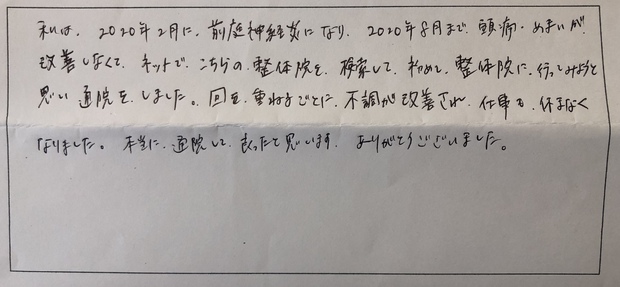 私は、2020年2月に、前庭神経炎になり、2020年8月まで、頭痛・めまいが
改善しなくて、ネットで、こちらの、整体院を、検索して、初めて、整体院に、行ってみようと
思い通院を、しました。回を、重ねるごとに、不調が改善され、仕事も、休まなく
なりました。本当に、通院して、良ったと思います。ありがとうございました。